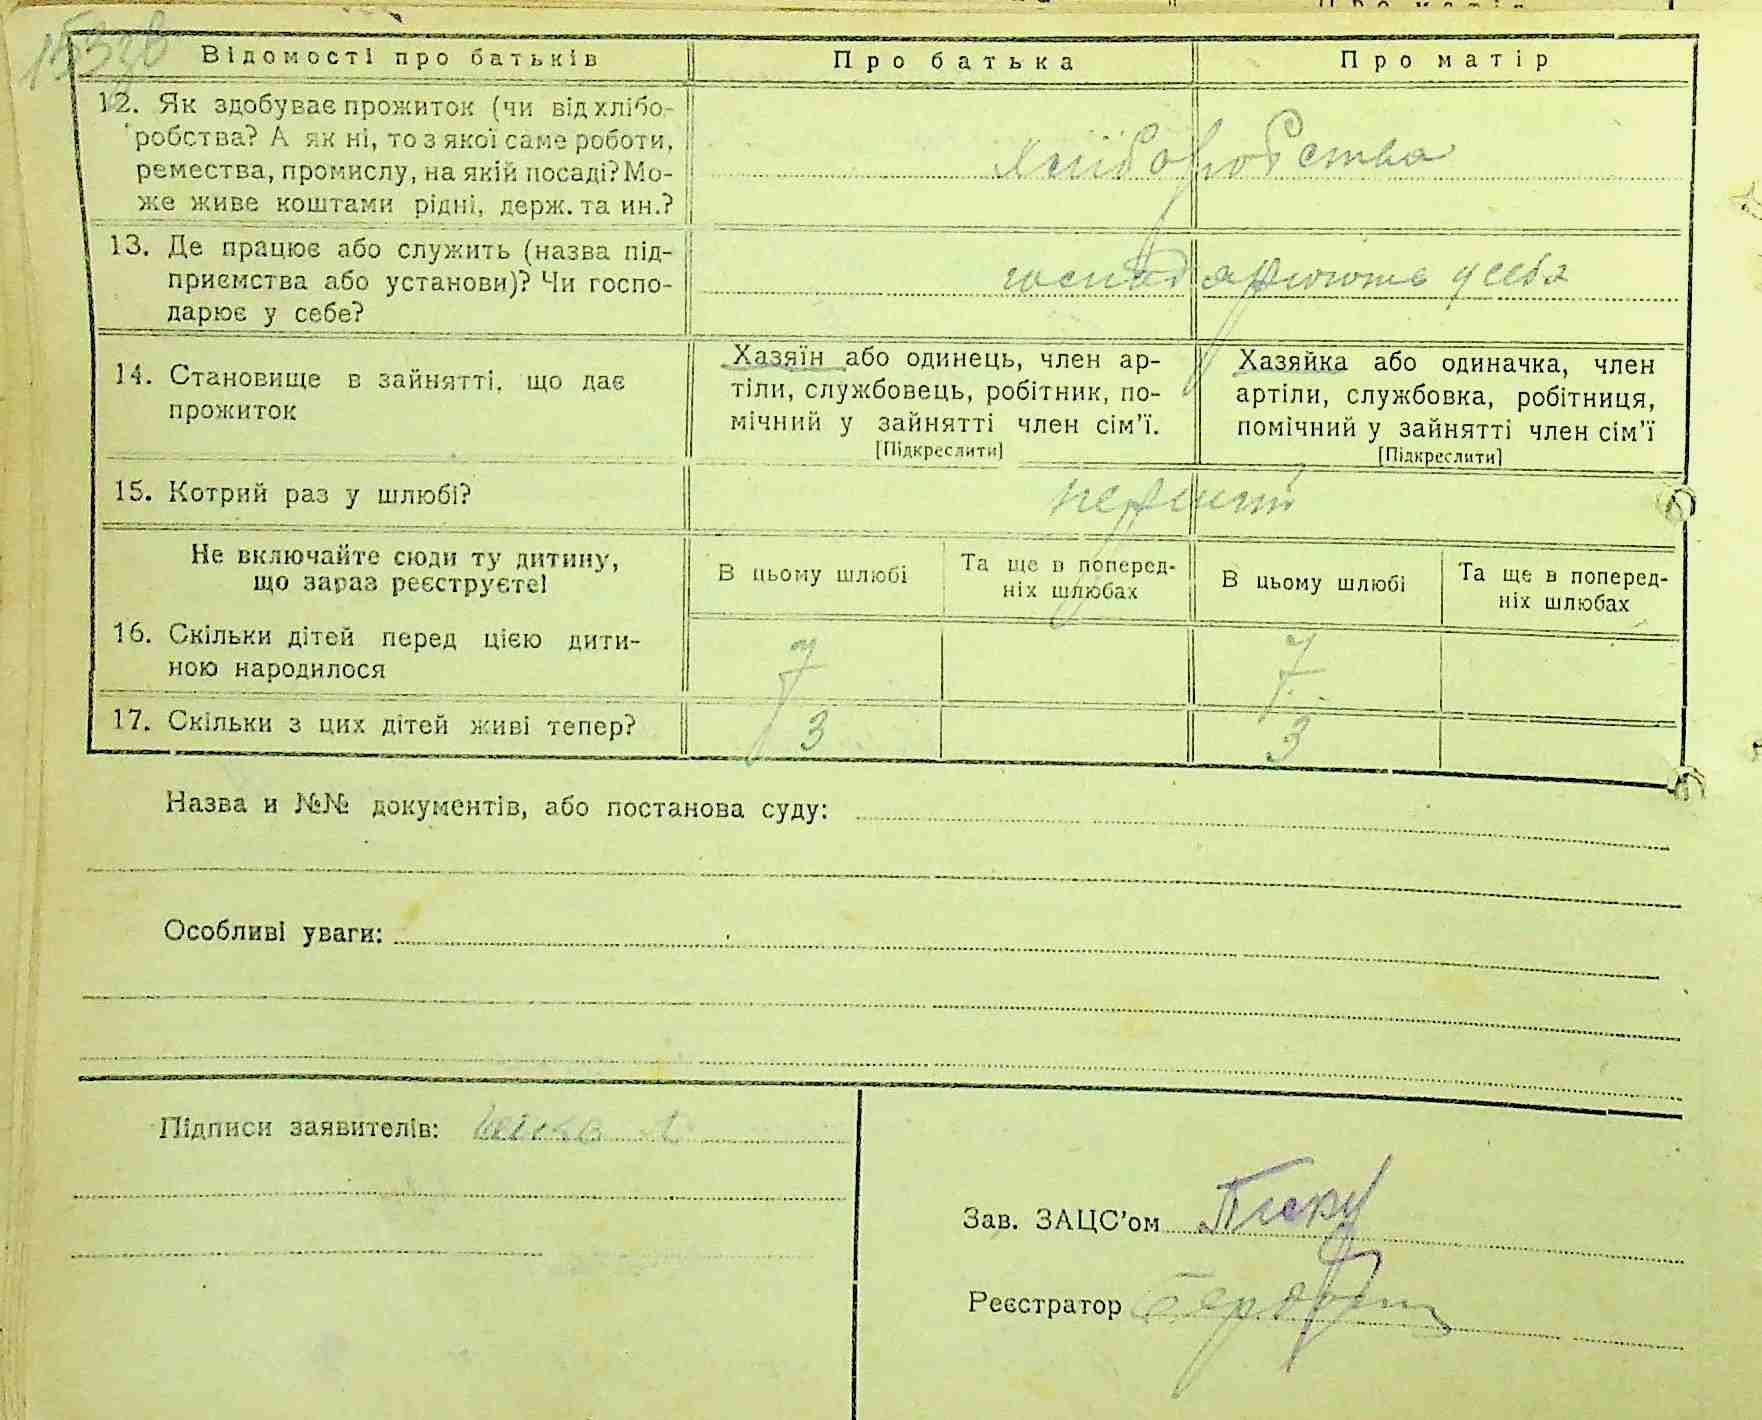 Відомості про батьків
Про батька
Про матір
12. Як здобуває прожиток (чи від хлібо-
робства? А як ні, то з якої саме роботи,
ремества, промислу, на якій посаді? Мо-
же живе коштами рідні, держ. та ин.?
хліборобства
13. Де працює або служить (назва під-
приємства або установи)? Чи госпо-
дарює у себе?
господарюють у себя
14. Становище в зайнятті, що дає
прожиток
Хазяїн або одинець, член ар-
тіли, службовець, робітник, по-
мічний у зайнятті член сім'ї.
[Підкреслити]
Хазяйка або одиначка, член
артіли, службовка, робітниця,
помічний у зайнятті член сім'ї
[Підкреслити]
15. Котрий раз у шлюбі?
перший
Не включайте сюди ту дитину,
що зараз реєструєте!
В цьому шлюбі
Та ще в поперед-
ніх шлюбах
В цьому шлюбі
Та ще в поперед-
ніх шлюбах
16. Скільки дітей перед цією дити-
ною народилося
7
7
17. Скільки з цих дітей живі тепер?
3
3
Назва и №№ документів, або постанова суду:
Особливі уваги:
Підписи заявителів:
Зав. ЗАЦС'ом
Реєстратор